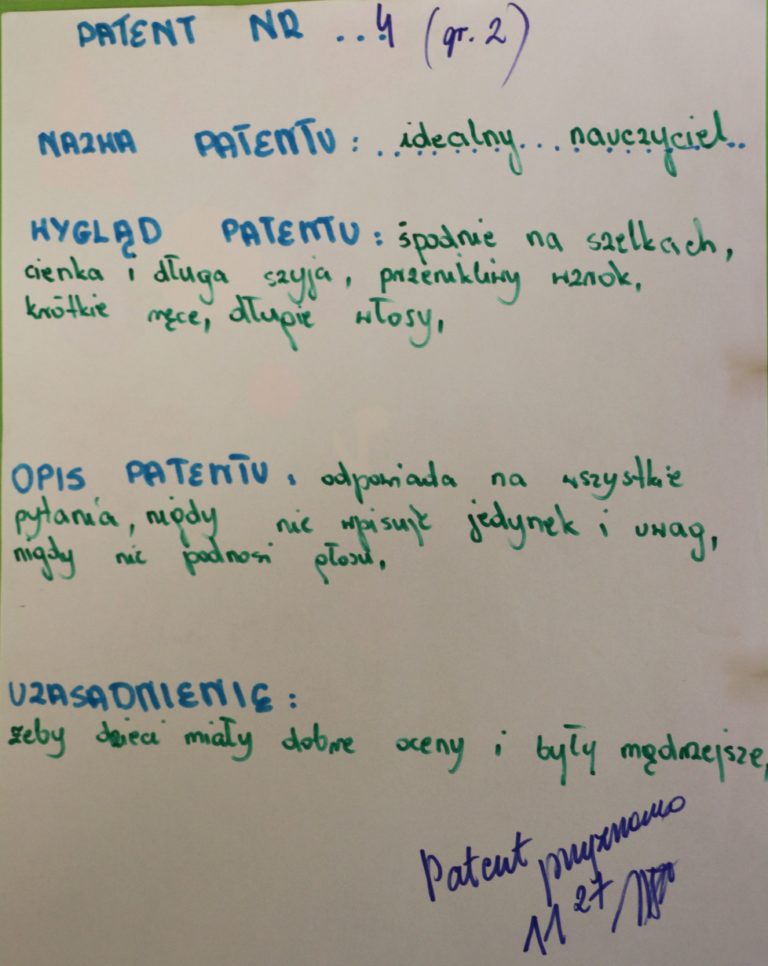 PATENT NR ..4 (gr. 2)
NAZWA PATENTU: ..idealny...nauczyciel..
WYGLĄD PATENTU: spodnie na szelkach,
cienka i długa szyja, przenikliwy wzrok,
krótkie ręce, długie włosy,
OPIS PATENTU: odpowiada na wszystkie
pytania, nigdy nie wpisuje jedynek i uwag,
nigdy nie podnosi głosu,
UZASADNIENIE:
żeby dzieci miały dobre oceny i były mądrzejsze,
Patent przyznano
11 27